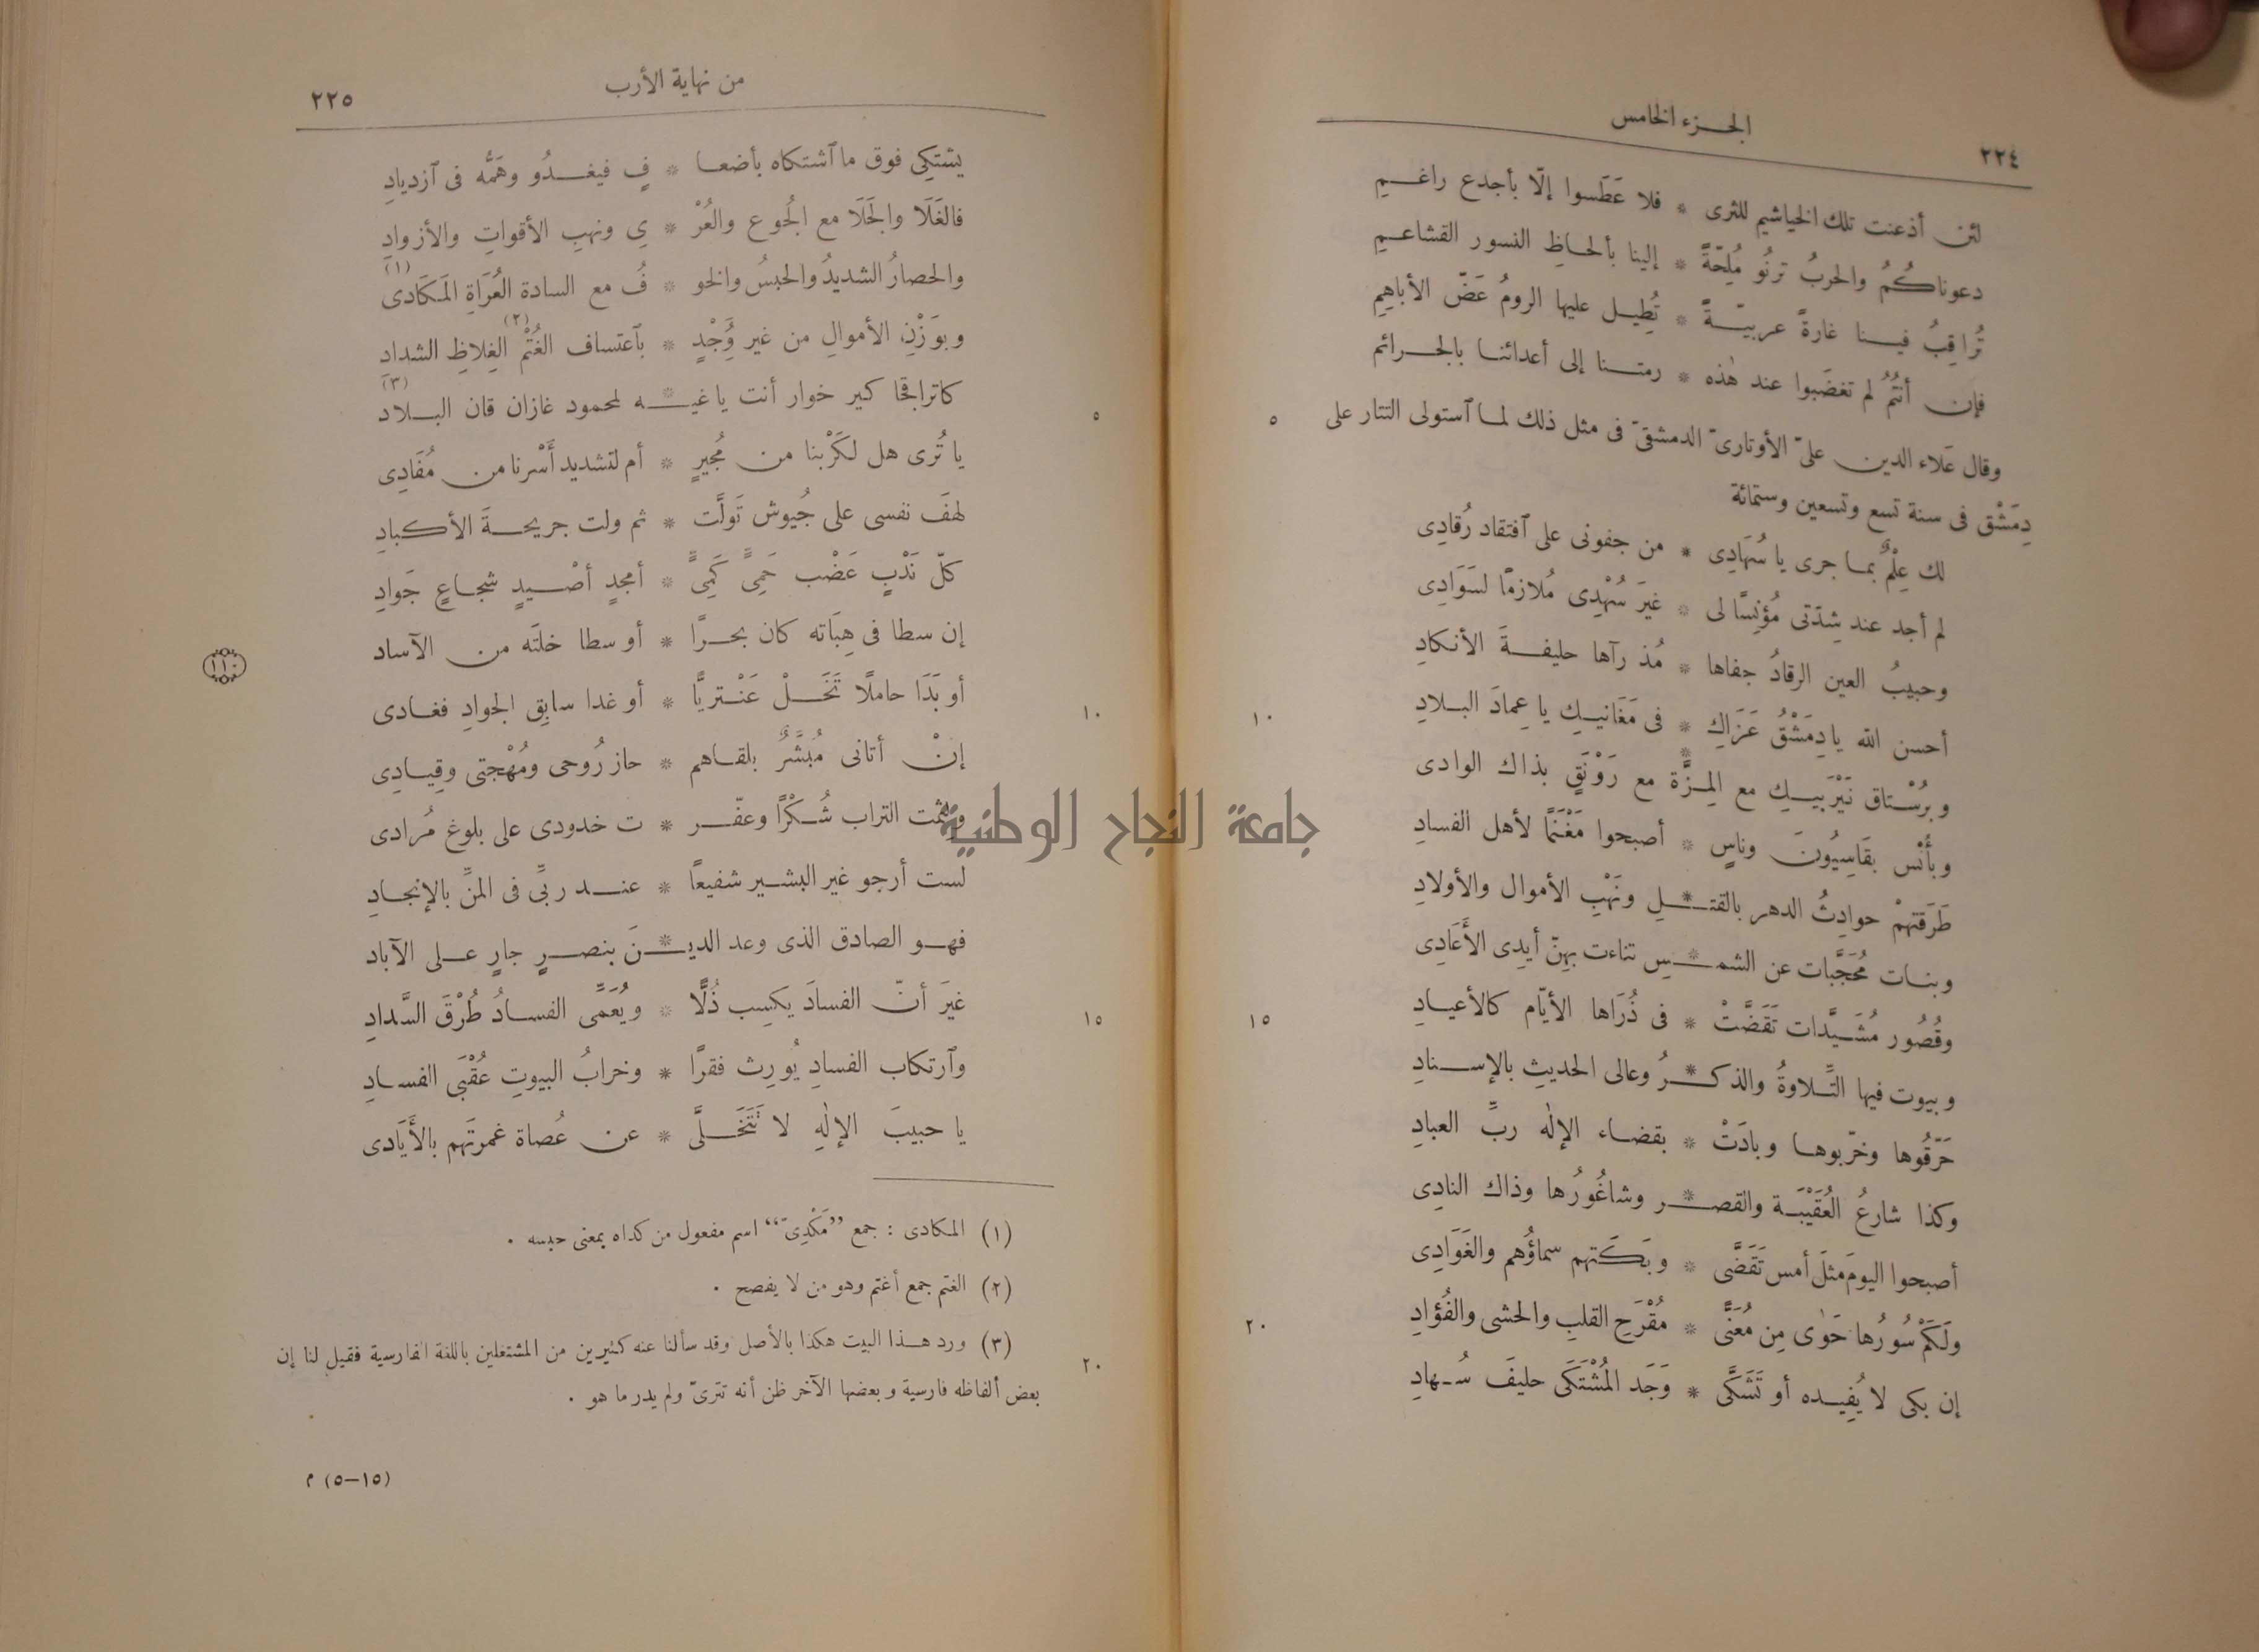 الجزء الخامس
٢٢٤
لئن أذعنت تلك الخياشيم للثرى * فلا عَطَسوا إلّا بأجدع راغـمِ
دعوناكُمُ والحربُ ترنُو مُلِحّةً * إلينا بألحاظِ النسور القشاعمِ
تُراقِبُ فينا غارةً عربيّةً * تُطِيل عليها الرومُ عَضّ الأباهِمِ
فإن أنتُمُ لم تغضَبوا عند هٰذه * رمتنا إلى أعدائنا بالجرائم
وقال عَلاء الدين علىّ الأوتارىّ الدمشقىّ فى مثل ذلك لما ٱستولى التتار على
٥
دِمَشْق فى سنة تسع وتسعين وستمائة
لك عِلْمٌ بما جرى يا سُهَادِى * من جفونى على ٱفتقاد رُقادِى
لم أجد عند شِدّتى مُؤنِسًا لى * غيرَ سُهْدِى مُلازمًا لسَوَادِى
وحبيبُ العين الرقادُ جفاها * مُذ رآها حليفةَ الأنكادِ
أحسن الله يا دِمَشْقُ عَزَاكِ * فى مَغَانيكِ يا عِمادَ البلادِ
١٠
وبرُسْتاق نَيْرَبَيكِ مع المِزَّة * مع رَوْنَقٍ بذاك الوادى
وبأُنْس بقَاسِيُونَ وناسٍ * أصبحوا مَغْنَمًا لأهل الفسادِ
طَرَقتهمْ حوادِثُ الدهر بالقتـ * ـلِ ونَهْبِ الأموال والأولادِ
وبنات مُحَجَّبات عن الشمـ * ـسِ تناءت بهنّ أيدِى الأَعَادِى
وقُصُور مُشَيَّدات تَقَضَّتْ * فى ذُرَاها الأيّام كالأعيادِ
١٥
وبيوت فيها التِّلاوةُ والذكـ * ـرُ وعالى الحديثِ بالإسنادِ
حَرّقُوها وخرّبوها وبادَتْ * بقضاء الإلٰه ربِّ العبادِ
وكذا شارعُ العُقَيْبَة والقصـ * ـر وشاغُورُها وذاك النادِى
أصبحوا اليومَ مثلَ أمس تَقَضَّى * وبَكَتهم سماؤُهم والغَوَادِى
ولَكَمْ سُورُها حَوٰى مِن مُعَنًّى * مُقْرَحِ القلبِ والحشى والفُؤادِ
٢٠
إن بكى لا يُفِيده أو تَشَكَّى * وَجَد المُشْتَكَى حليفَ سُهادِ
من نهاية الأرب
٢٢٥
يشتكِى فوق ما ٱشتكاه بأضعا * فٍ فيغدُو وهَمُّه فى ٱزديادِ
فالغَلَا والجَلَا مع الجُوع والعُرْ * ىِ ونهبِ الأقواتِ والأزوادِ
والحصارُ الشديدُ والحبسُ والخو * فُ مع السادة العُرَاةِ المَكَادى (١)
وبوَزْنِ الأموالِ من غير وُجْدٍ * بٱعتساف الغُتْم (٢) الغِلاظِ الشدادِ
كاتراقحا كير خوار أنت يا غيـ * ـه لمحمود غازان قان البلاد (٣)
٥
يا تُرى هل لكَرْبنا من مُجيرٍ * أم لتشديد أَسْرنا من مُفَادِى
لهفَ نفسى على جُيوش تَولَّت * ثم ولت جريحةَ الأكبادِ
كلّ نَدْبٍ عَضْب حَمِىًّ كَمِىًّ * أمجدٍ أصْيدٍ شجاعٍ جَوادِ
إن سطا فى هِبَاته كان بحرًا * أو سطا خلتَه من الآساد
١١٠
أو بَدَا حاملًا تَخَلْ عَنْتريًّا * أو غدا سابِق الجوادِ فغادى
١٠
إنْ أتانى مُبَشِّرٌ بلقاهم * حاز رُوحى ومُهْجتى وقِيادِى
ولثمت التراب شُكْرًا وعفّر * ت خدودى على بلوغ مُرادى
لست أرجو غير البشير شفيعاً * عند ربِّى فى المنِّ بالإنجادِ
فهو الصادق الذى وعد الديـ * ـنَ بنصرٍ جارٍ على الآباد
غيرَ أنّ الفسادَ يكسِب ذُلًّا * ويُعَمِّى الفسادُ طُرْقَ السَّدادِ
١٥
وٱرتكاب الفسادِ يُورِث فقرًا * وخرابُ البيوتِ عُقْبَى الفسادِ
يا حبيبَ الإلٰهِ لا تَتَخَلَّى * عن عُصاة غمرتَهم بالأَيَادى
(١) المكادى : جمع ”مَكْدِىّ“ اسم مفعول من كداه بمعنى حبسه .
(٢) الغتم جمع أغتم وهو من لا يفصح .
(٣) ورد هذا البيت هكذا بالأصل وقد سألنا عنه كثيرين من المشتغلين باللغة الفارسية فقيل لنا إن
٢٠
بعض ألفاظه فارسية وبعضها الآخر ظن أنه تترىّ ولم يدر ما هو .
(١٥-٥) م
جامعة النجاح الوطنية